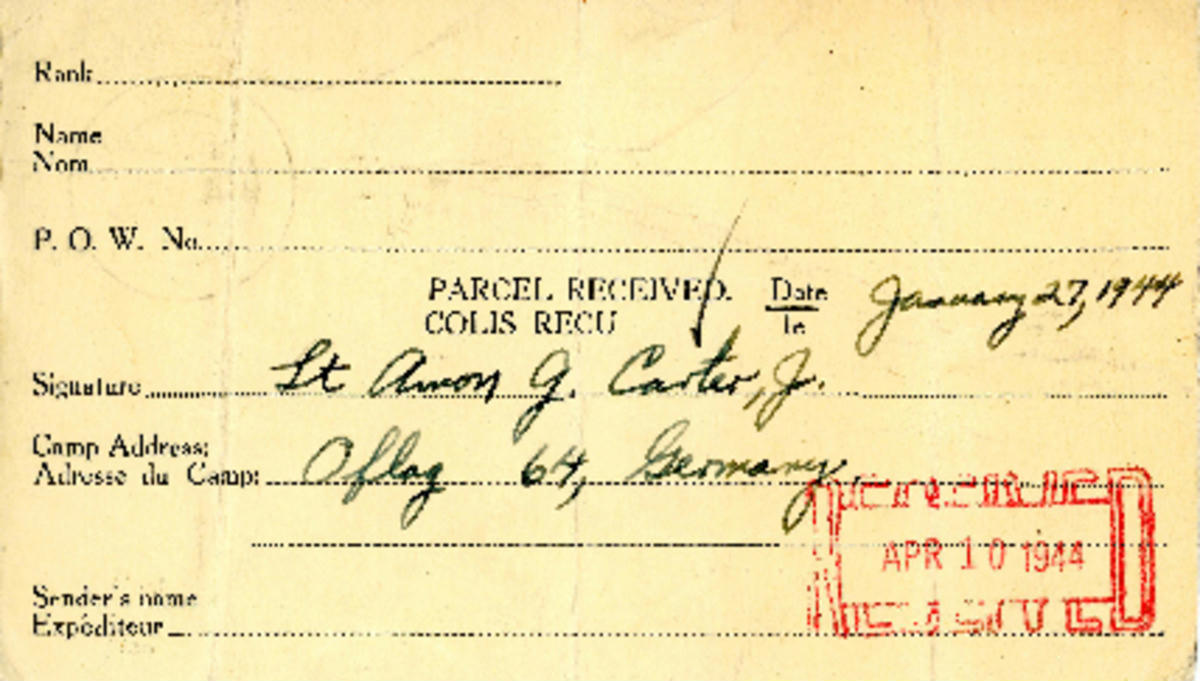 Rank
Name
Nom
P. O. W. No.
PARCEL RECEIVED. Date January 27, 1944
COLIS RECU le
Signature Lt Amon G. Carter, J.
Camp Address:
Adresse du Camp: Oflag 64, Germany
RECEIVED
APR 10 1944
Sender's name
Expéditeur